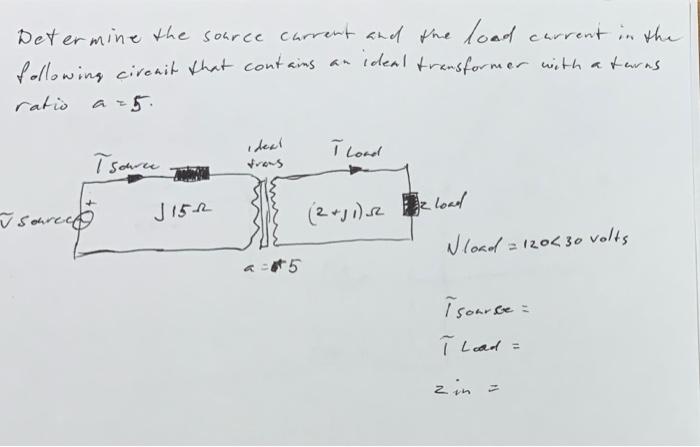 Determine the source current and the load current in the
following circuit that contains an ideal transformer with a turns
ratio a = 5.
ideal
trans
Ĩ source
Ĩ Load
ṽ source
+
J 15 Ω
(2+J1) Ω
z load
a = 5
Vload = 120<30 volts
Ĩ source =
Ĩ Load =
z in =